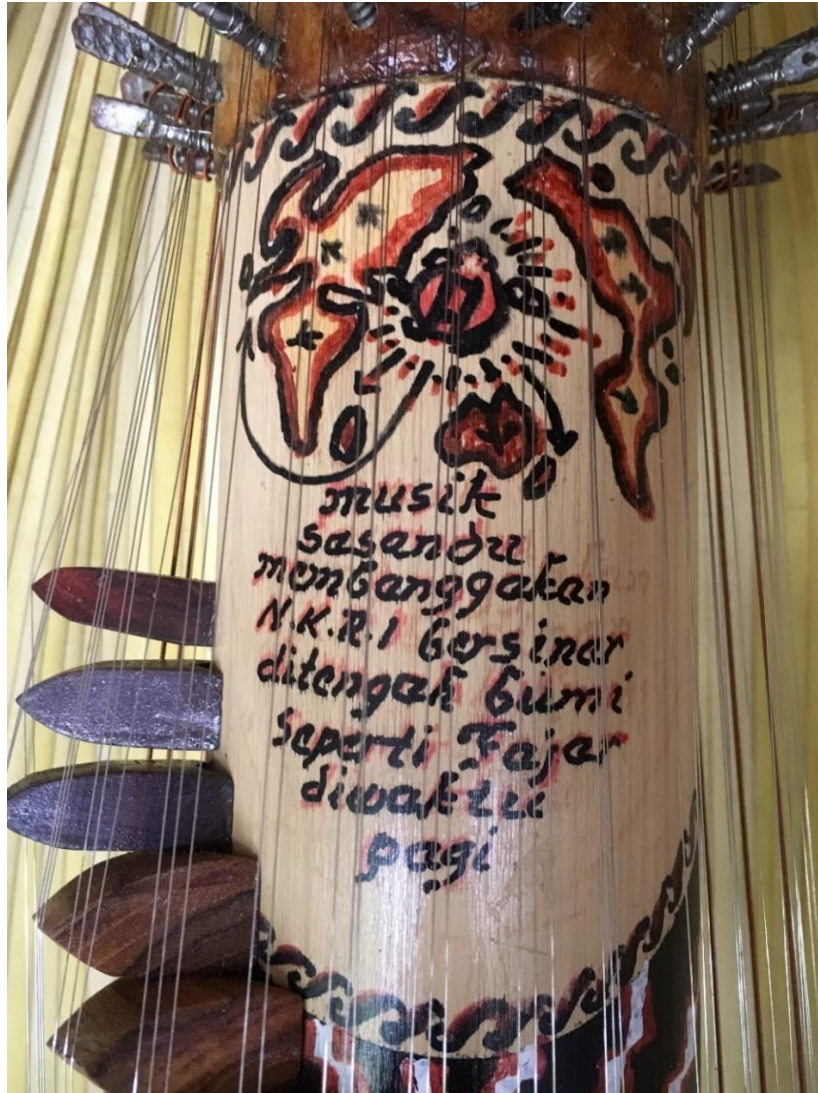 musik
sasandu
membanggakan
N.K.R.I bersinar
ditengah bumi
seperti Fajar
diwaktu
pagi